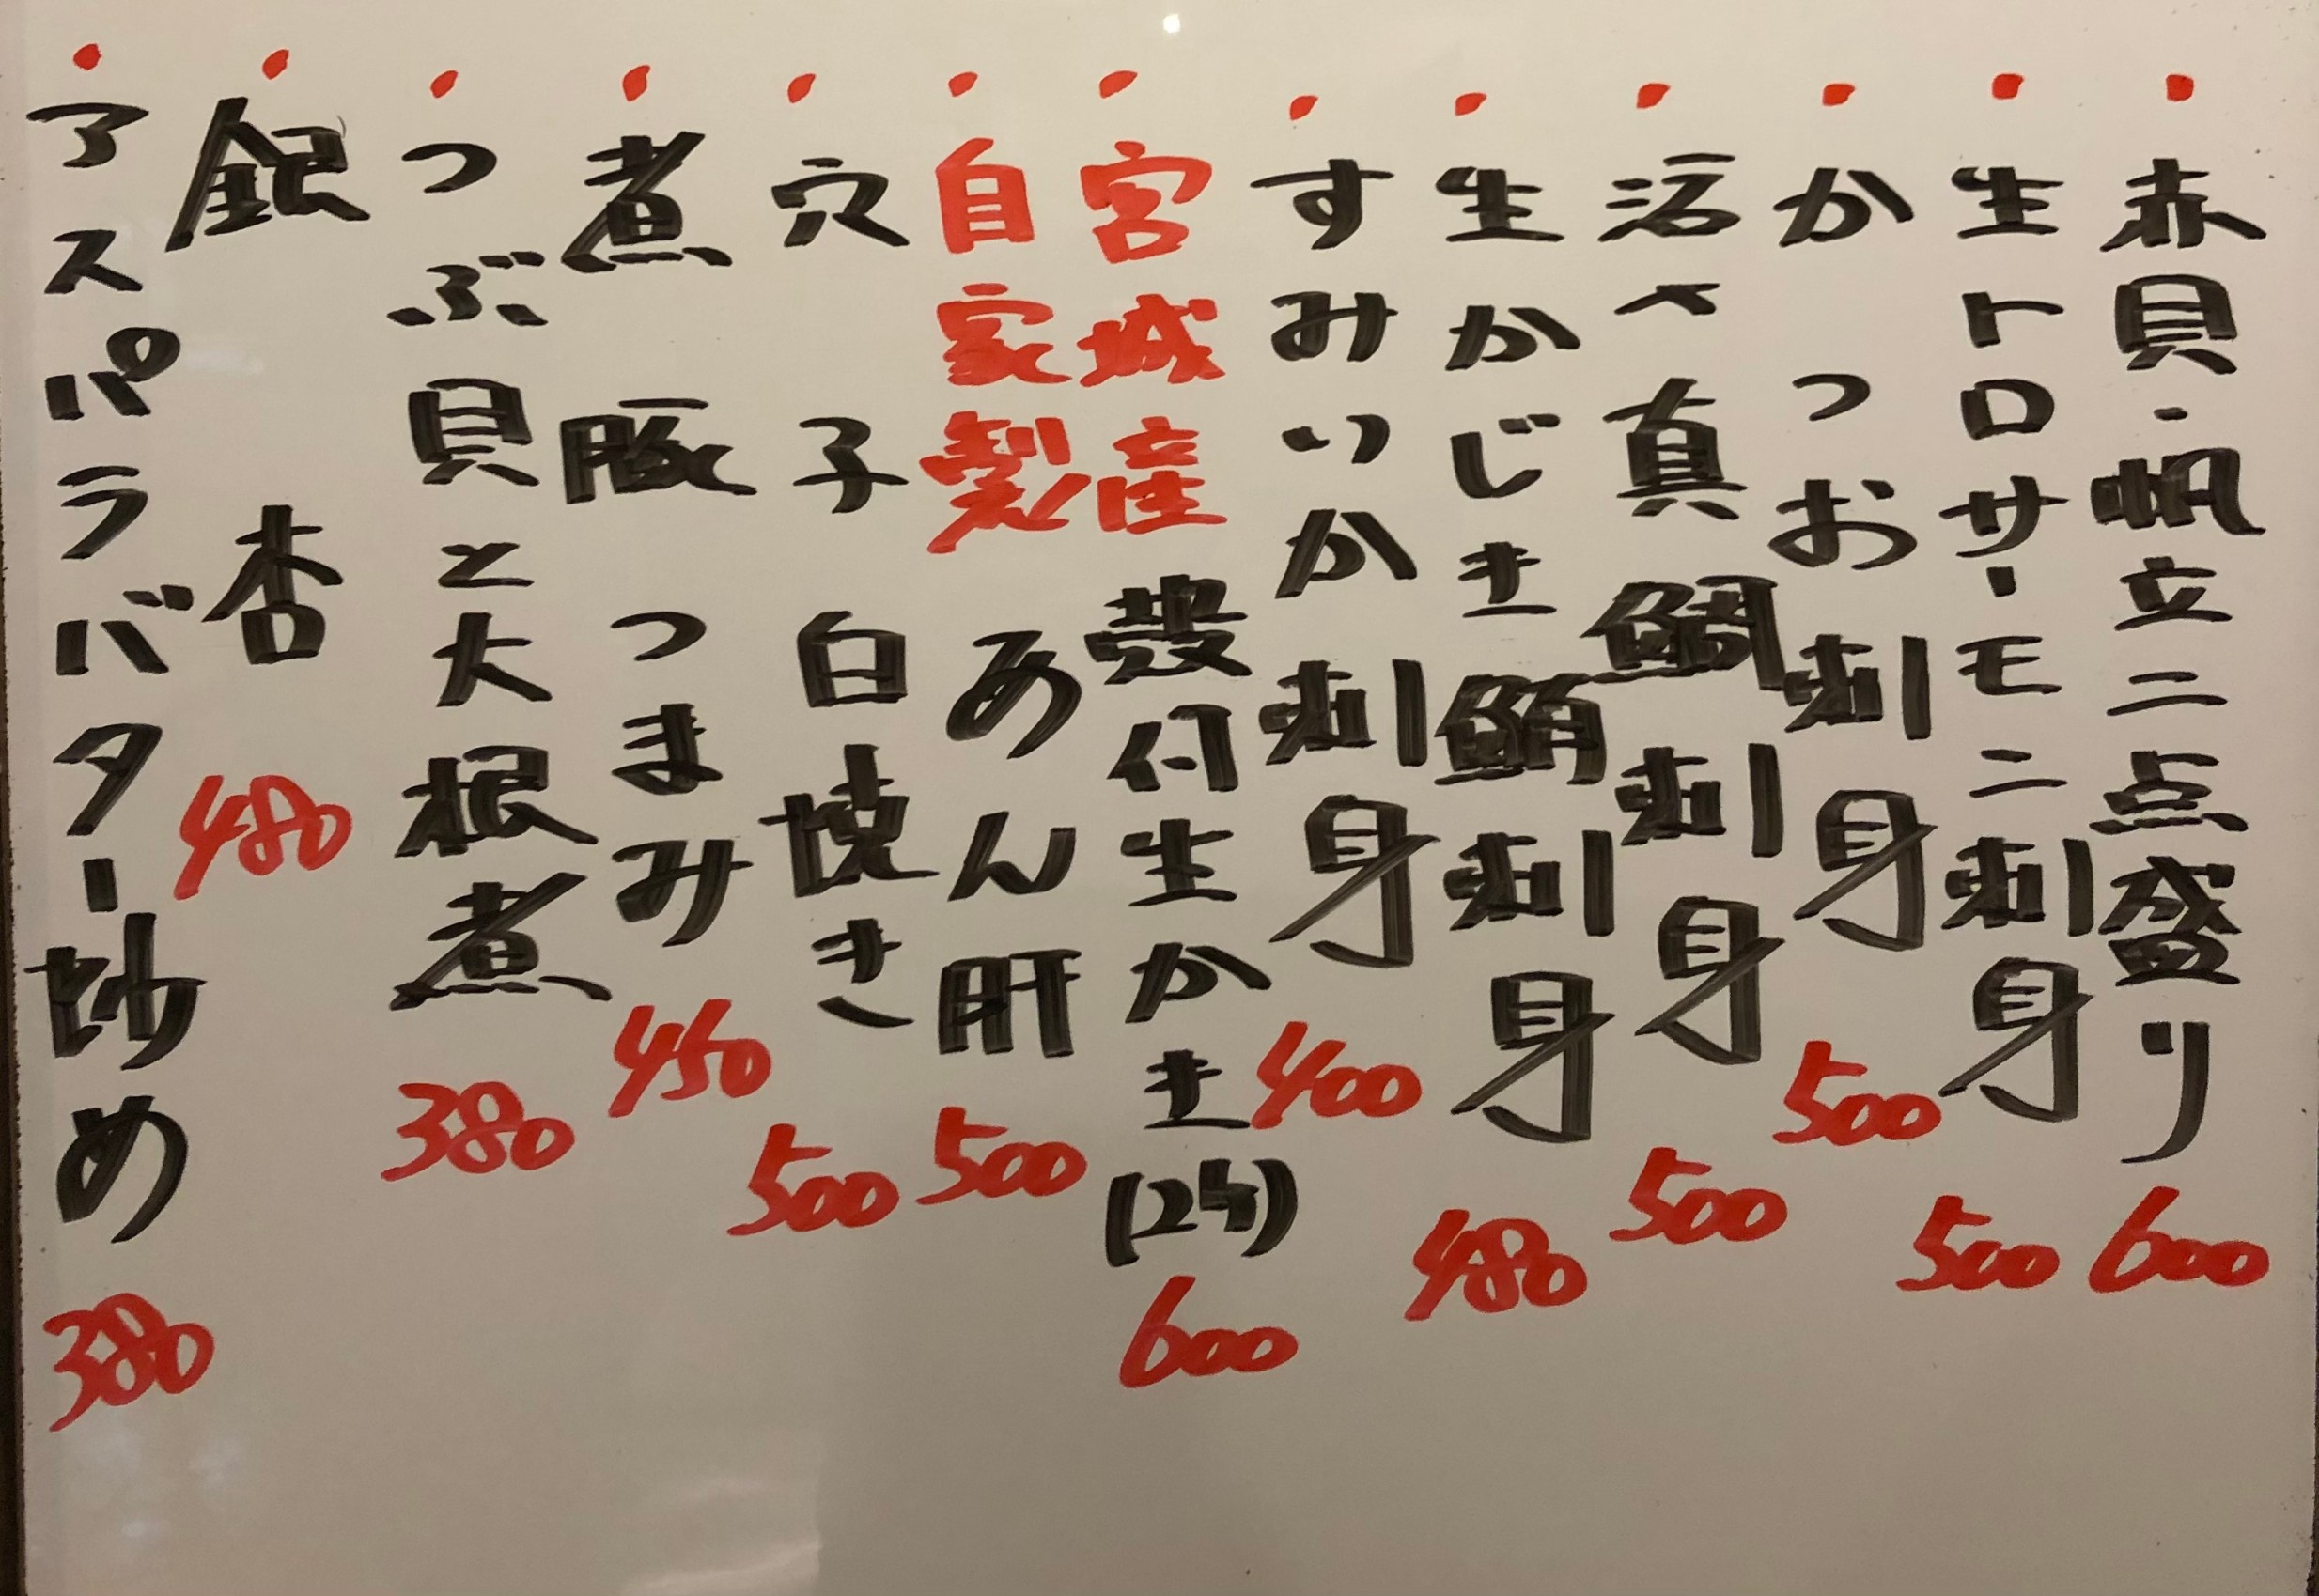 ・赤貝・帆立二点盛り 600
・生トロサーモン刺身 500
・かつお刺身 500
・活〆真鯛刺身 500
・生かじき鮪刺身 480
・すみいか刺身 400
・宮城産殻付生かき(2ヶ) 600
・自家製あん肝 500
・穴子白焼き 500
・煮豚つまみ 450
・つぶ貝と大根煮 380
・銀杏 480
・アスパラバター炒め 380